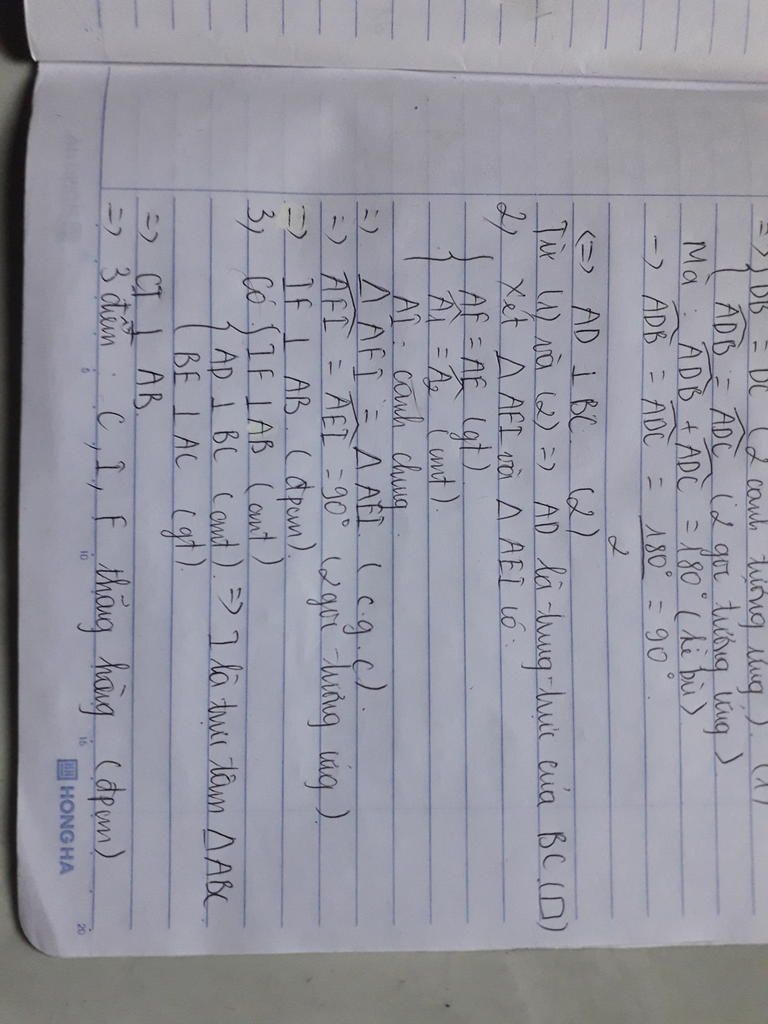 => { DB = DC (2 cạnh tương ứng). (1)
{ ADB = ADC (2 góc tương ứng)
Mà : ADB + ADC = 180° (kề bù)
→ ADB = ADC = 180° = 90°.
2
<=> AD ⊥ BC. (2)
Từ (1) và (2) => AD là trung trực của BC. (□)
2, Xét Δ AFI và Δ AEI có :
{ AF = AE (gt)
{ A1 = A2 (cmt).
AI : cạnh chung.
=> Δ AFI = Δ AEI. (c.g.c).
=> AFI = AEI = 90° (2 góc tương ứng).
=> IF ⊥ AB. (đpcm).
3, Có { IF ⊥ AB (cmt)
{ AD ⊥ BC (cmt). => I là trực tâm Δ ABC
BE ⊥ AC (gt).
=> CI ⊥ AB.
=> 3 điểm : C, I, F thẳng hàng (đpcm)
5 10 15 20
HONG HA